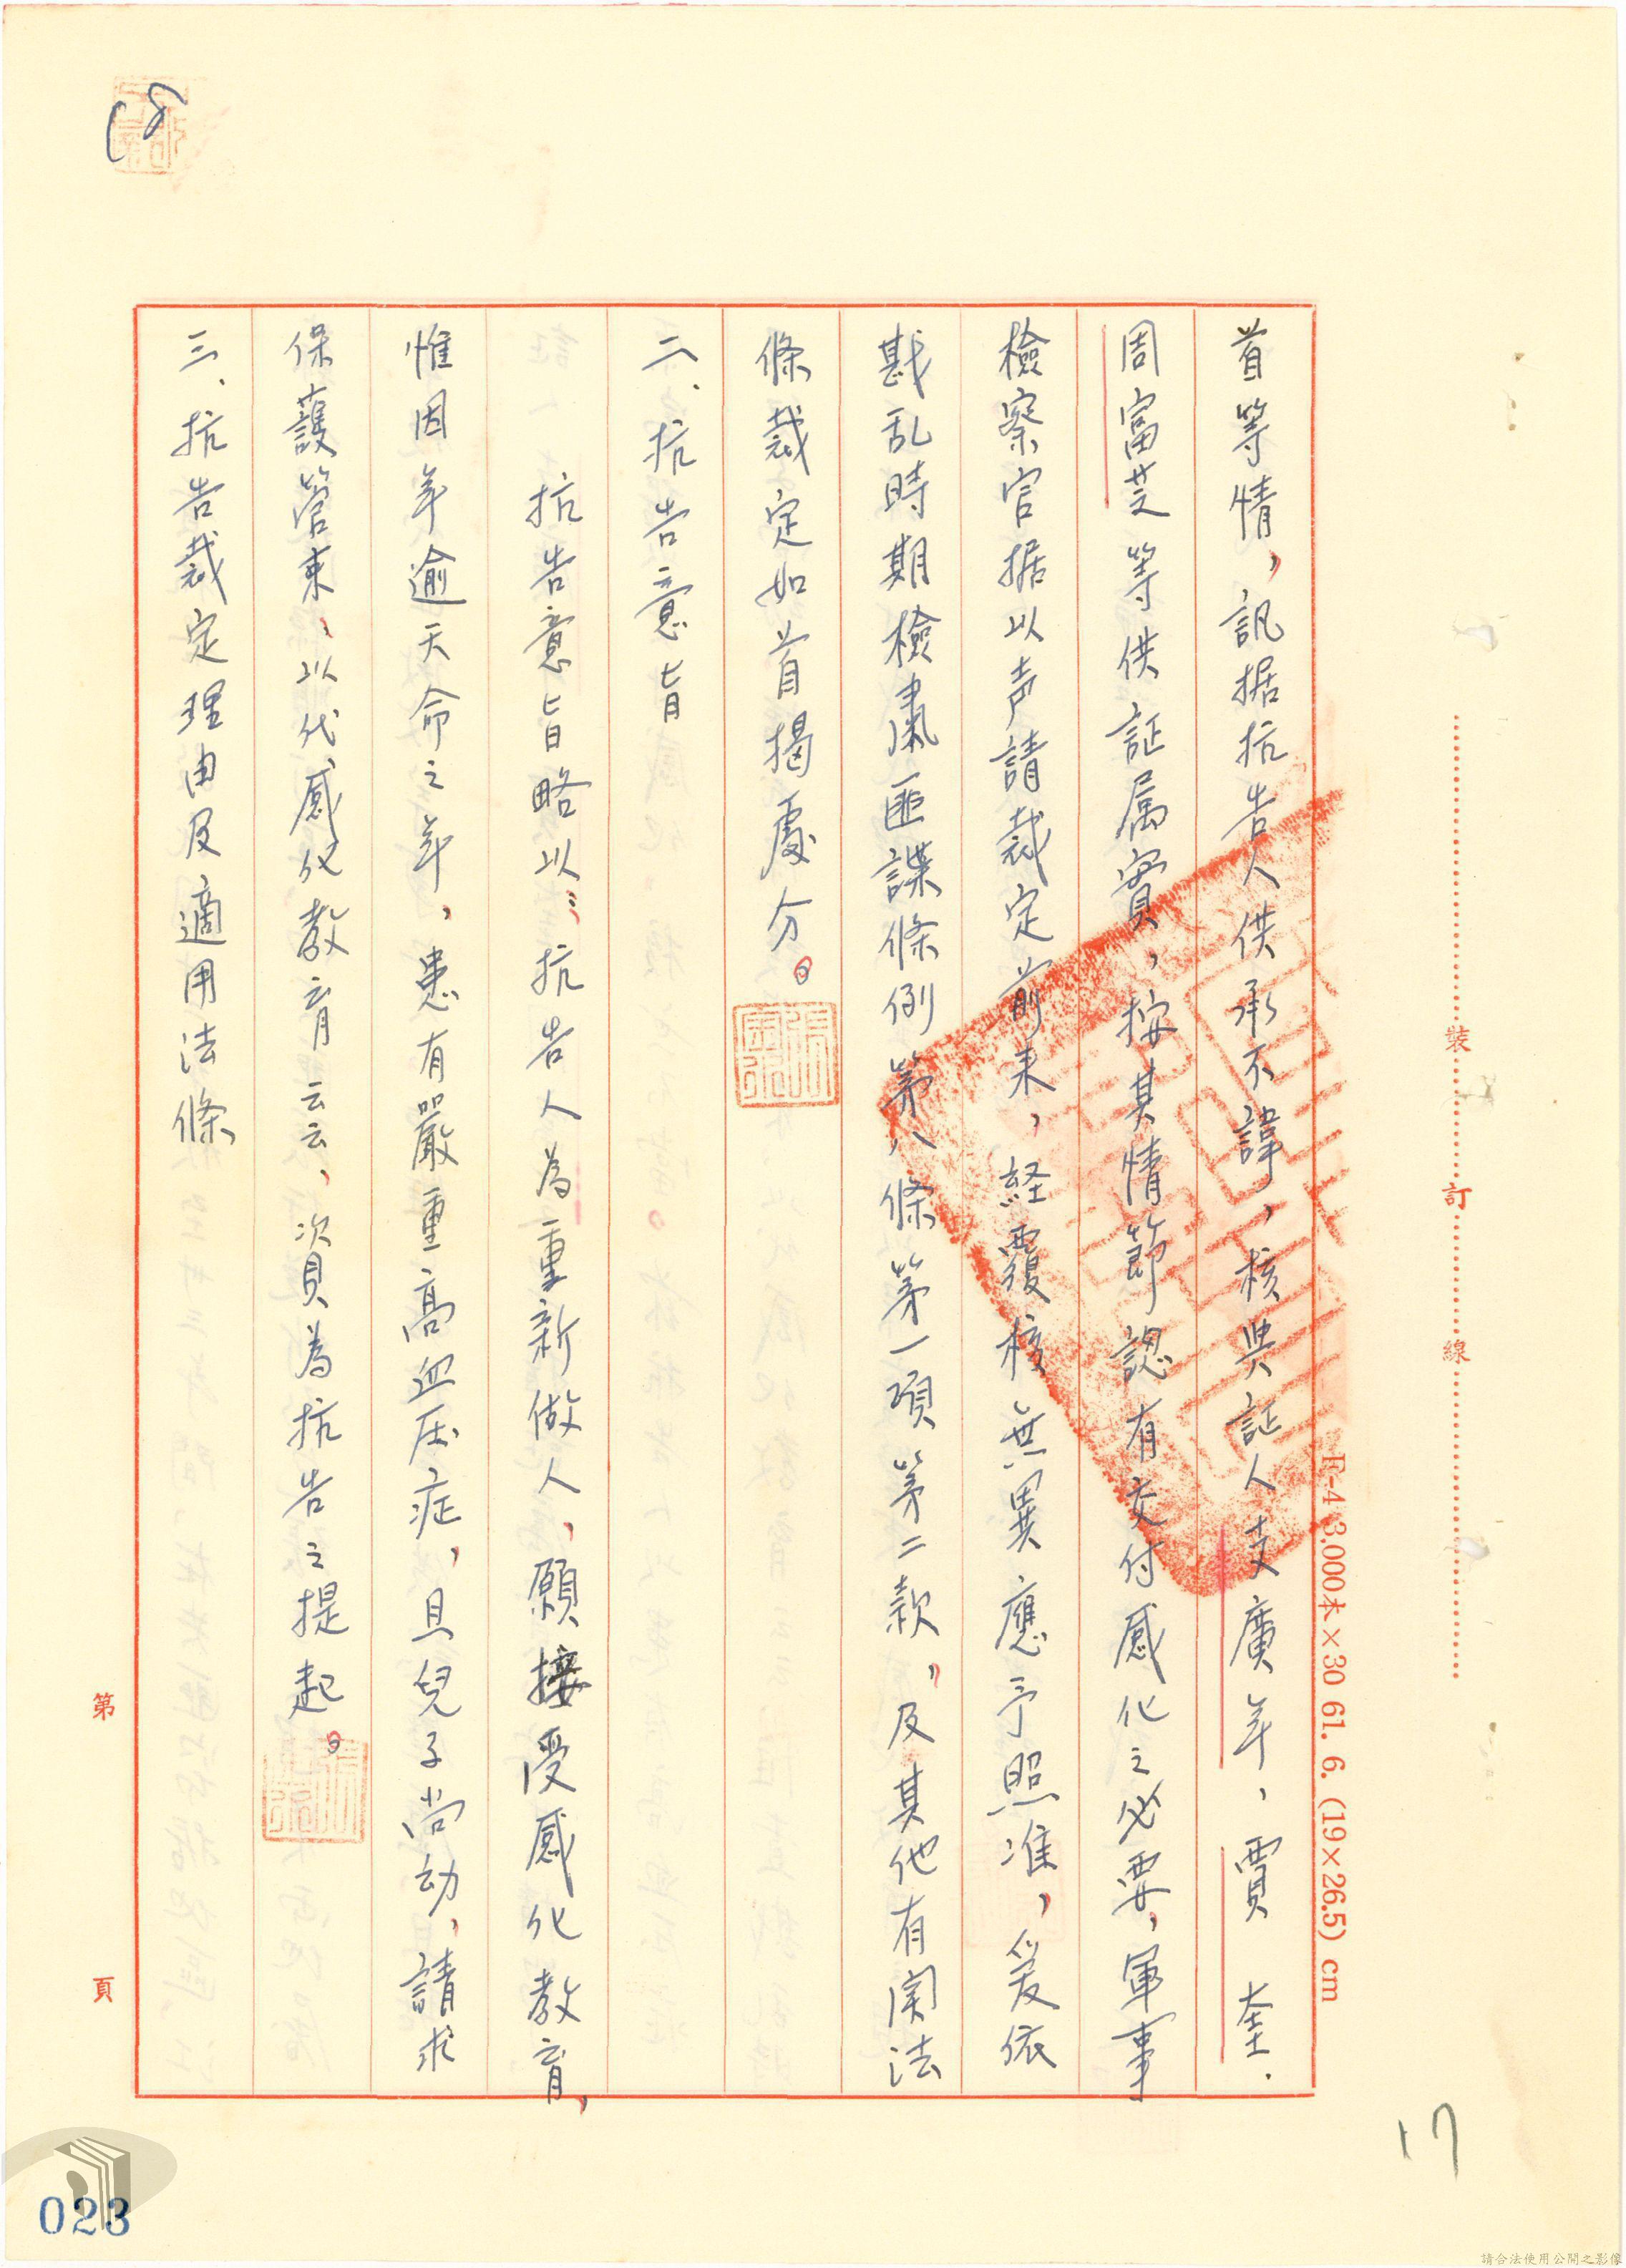 首等情，訊据抗告人供承不諱，核與証人支廣年、賈　奎.
周富芝等供証属實，按其情節認有交付感化之必要，軍事
檢察官据以声請裁定前来，経覆核無異應予照准，爰依
戡乱時期檢肅匪諜條例第八條第一項第二款，及其他有関法
條裁定如首揭處分。
二、抗告意旨
抗告意旨略以：抗告人為重新做人，願接受感化教育，
惟因年逾天命之年，患有嚴重高血压症，且兒子尚幼，請求
保護管束，以代感化教育云云，次資為抗告之提起。
三、抗告裁定理由及適用法條
裝
訂
線
F-4 3,000本×30 61. 6. (19×26.5) cm
第
頁
17
023
請合法使用公開之影像